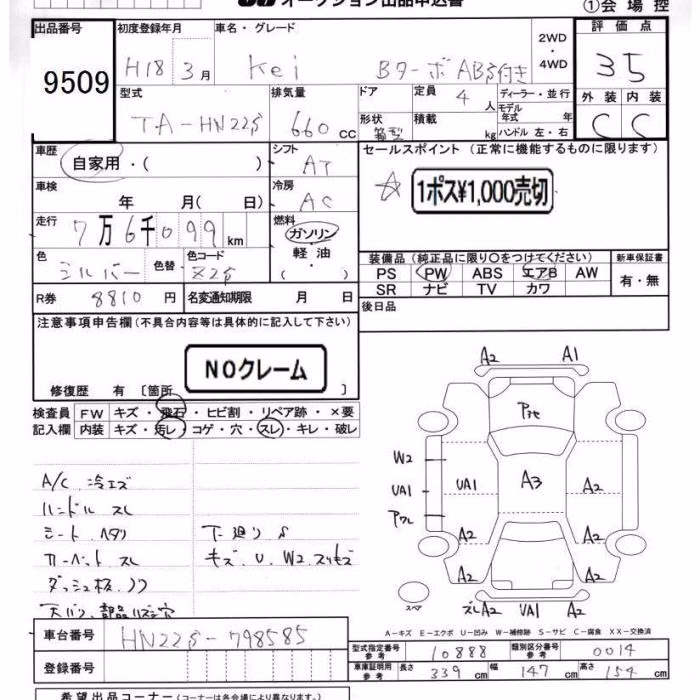 オークション出品申込書
①会場控
出品番号
9509
初度登録年月
H18 3月
車名・グレード
Kei Bターボ ABS付き
2WD・4WD
評価点
35
型式
TA-HN22S
排気量
660 CC
ドア
定員 4 人
ディーラー・並行
モデル年式 年
形状
積載 kg
ハンドル 左・右
外装 内装
C C
車歴
自家用・( )
シフト
AT
セールスポイント (正常に機能するものに限ります)
☆ 1ポス¥1,000売切
車検
年 月( 日)
冷房
AC
走行
7万6千099 km
燃料
ガソリン・軽油・( )
色
シルバー
色替
色コード
Z2S
装備品 (純正品に限り○をつけてください)
新車保証書
PS PW ABS エアB AW
SR ナビ TV カワ
有・無
R券 8810 円
名変通知期限 月 日
後日品
注意事項申告欄 (不具合内容等は具体的に記入して下さい)
NOクレーム
修復歴 有 〔箇所 〕
検査員 FW キズ・飛石・ヒビ割・リペア跡・×要
記入欄 内装 キズ・汚レ・コゲ・穴・スレ・キレ・破レ
A/C 冷エズ
ハンドル スレ
シート ヘタリ
カーペット スレ
ダッシュ板 ノリ
下廻り S
キズ U W2 スリキズ
A2 A1
W2
UA1
UA1
A3
A2
A2
A2
A2
A2
スペア
ズレA2 UA1 A2
A-キズ E-エクボ U-凹み W-補修跡 S-サビ C-腐食 XX-交換済
車台番号 HN22S-798585
登録番号
型式指定番号 参考 10888
類別区分番号 参考 0014
車庫証明用 参考 長さ 339 cm 幅 147 cm 高さ 154 cm
希望出品コーナー (コーナーは各会場により異なります。)